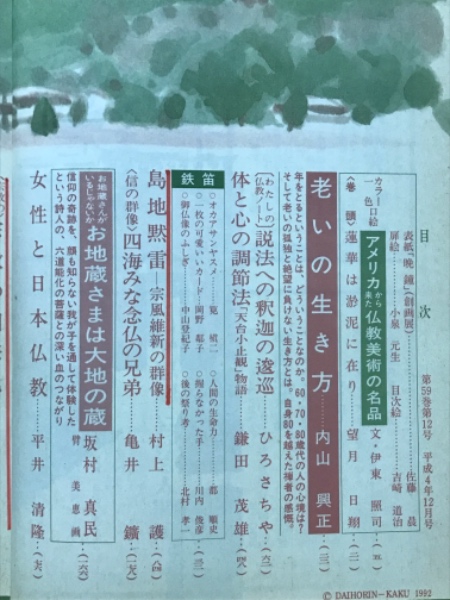 目次
第59巻第12号 平成4年12月号
表紙「晩鐘」(創画展) 佐藤 晨
扉絵 小泉元生 目次絵 吉崎道治
カラー口絵
一色
アメリカから来た仏教美術の名品 文・伊東照司
〈巻頭〉蓮華は淤泥に在り 望月日翔
老いの生き方 内山興正
年をとるということは、どういうことなのか。60・70・80歳代の人の心境は?
そして老いの孤独と絶望に負けない生き方とは。自身80を越えた禅者の感慨。
〈わたしの仏教ノート〉説法への釈迦の逡巡 ひろさちや
体と心の調節法「天台小止観」物語 鎌田茂雄
鉄笛
○オカアサンヤスメ 寛
○人間の生命力 都 順史
○一枚の可愛いいカード 岡野
○掘らなかった手 川内俊彦
○野仏像のふしぎ 中山登紀子
○後の祭り考 北村孝一
島地黙雷 宗風維新の群像 村上護
〈信の群像〉四海みな念仏の兄弟 亀井鑛
お地蔵さんがいるじゃないか
お地蔵さまは大地の蔵 坂村真民
信仰の奇跡を、顔も知らない我が子を通して体験した
という詩人の、六道能化の菩薩との深い血のつながり
女性と日本仏教 平井清隆
© DAIHORIN-KAKU 1992